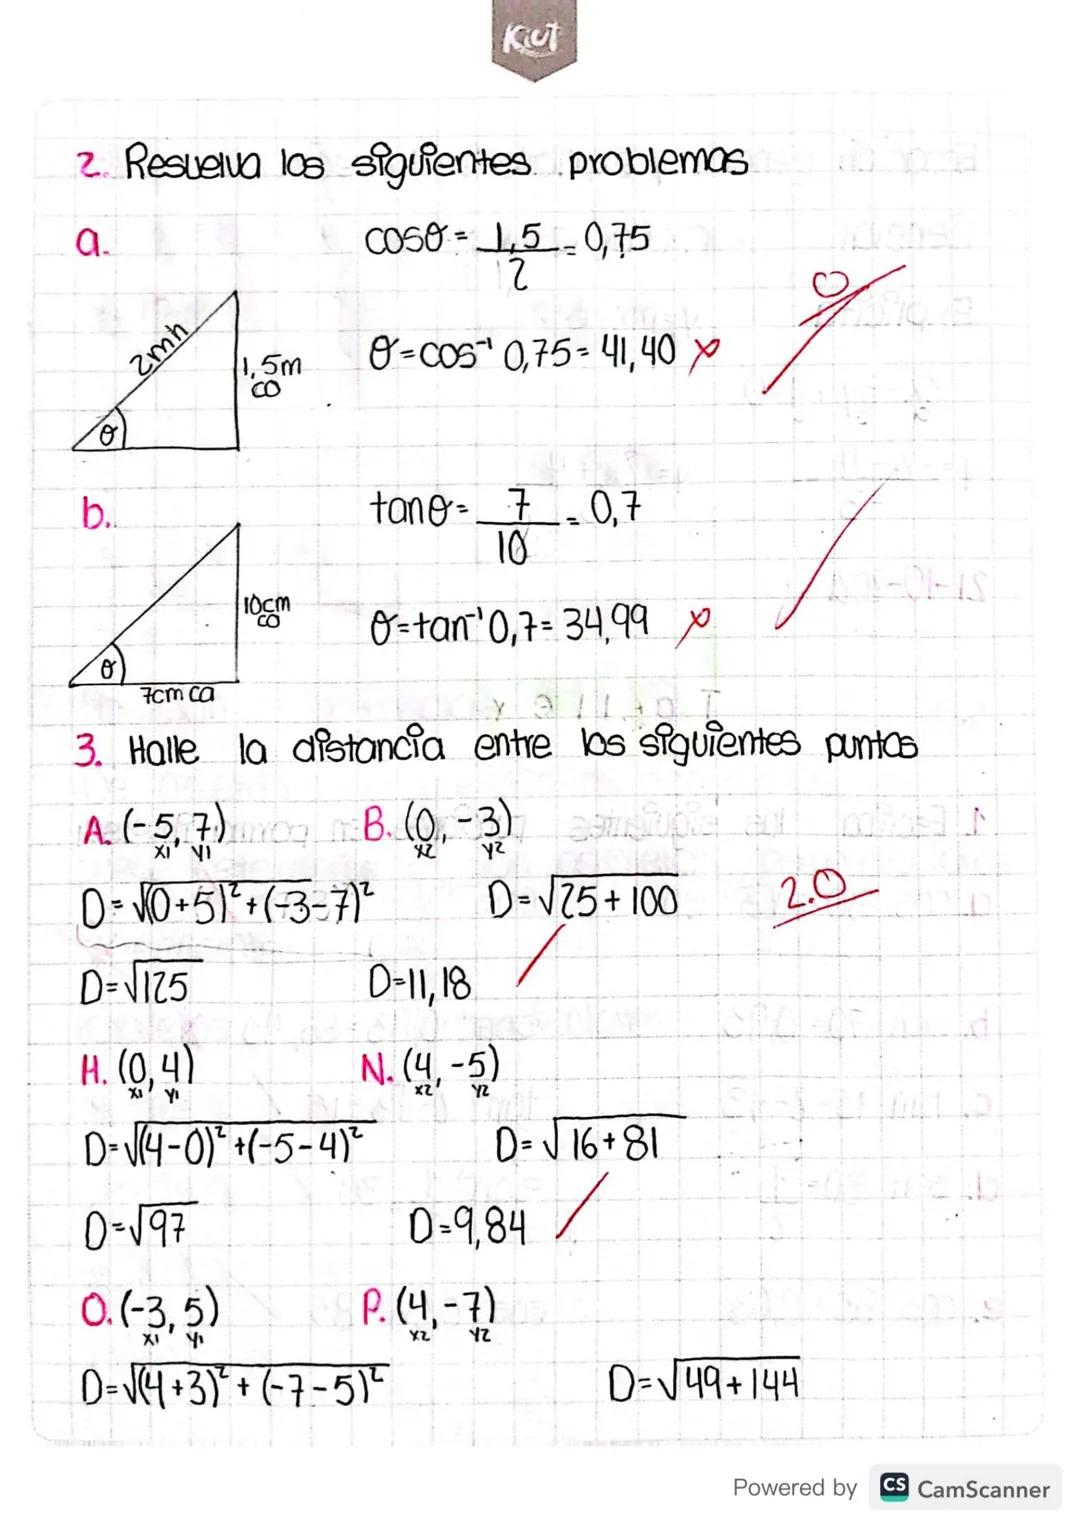 Kiut
2. Resuelva los siguientes problemas
a.
cosθ = 1,5 = 0,75
2
2m h
1,5m
co
θ
θ=cos⁻¹ 0,75= 41,40 x
0
b.
tanθ= 7 = 0,7
10
10cm
co
θ
7cm ca
θ=tan⁻¹0,7= 34,99 x
3. Halle la distancia entre los siguientes puntos
A. (-5, 7) B. (0, -3)
x1 y1 x2 y2
D= √(0+5)²+(-3-7)² D=√25+100
2.0
D=√125 D=11,18
H. (0, 4) N. (4, -5)
x1 y1 x2 y2
D=√(4-0)²+(-5-4)² D=√16+81
D=√97 D=9,84
O. (-3, 5) P. (4, -7)
x1 y1 x2 y2
D=√(4+3)²+(-7-5)² D=√49+144
Powered by CS CamScanner